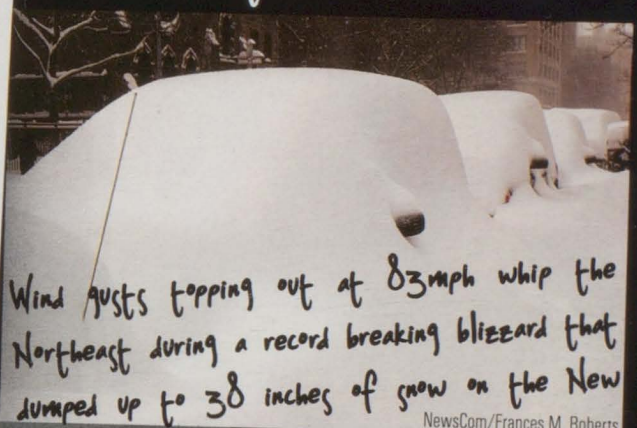 Wind gusts topping out at 83mph whip the
Northeast during a record breaking blizzard that
dumped up to 38 inches of snow on the New
NewsCom/Frances M. Roberts